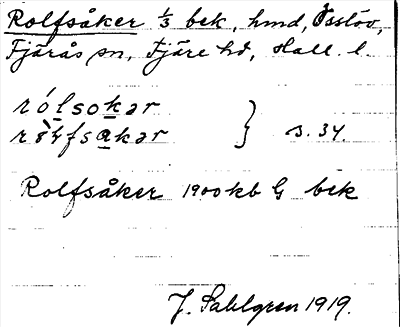 Rolfsåker 1/3 bek, hmd, Össlöv,
Fjärås sn, Fjäre hd, Hall. l.
rólsokar
} s. 34.
Rolfsåker 1900kb G bek
J. Sahlgren 1919.